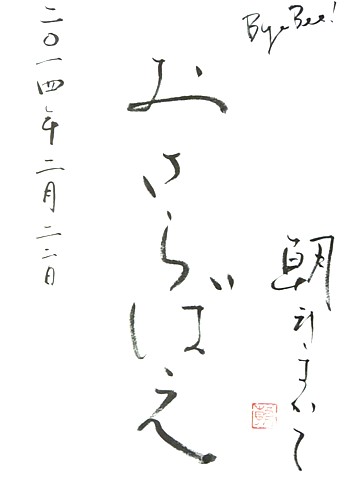 Bye Bee!
朝井まかて
おさらばえ
二〇一四年二月二二日